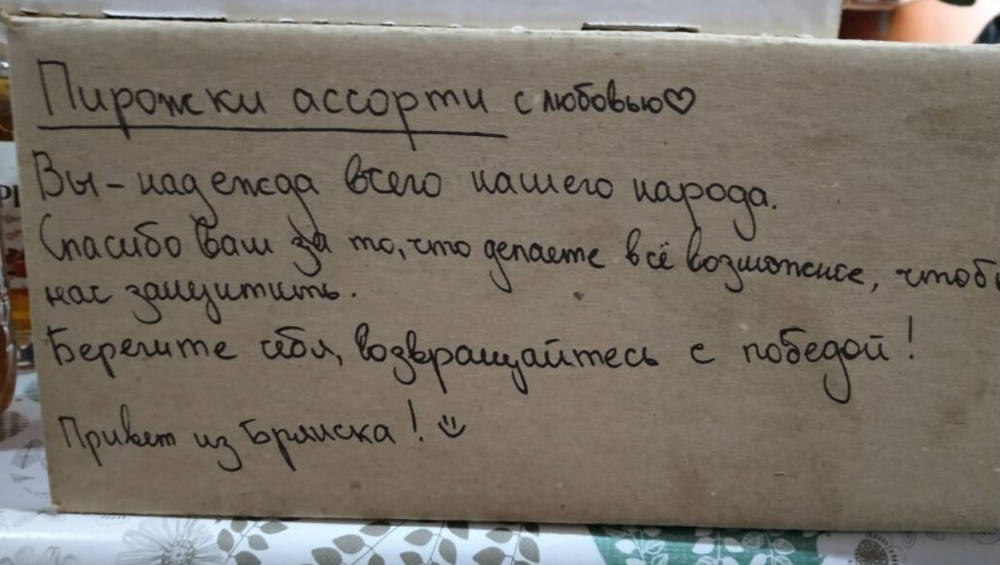 Пирожки ассорти с любовью♡
Вы - надежда всего нашего народа.
Спасибо Вам за то, что делаете всё возможное, чтобы
нас защитить.
Берегите себя, возвращайтесь с победой!
Привет из Брянска!